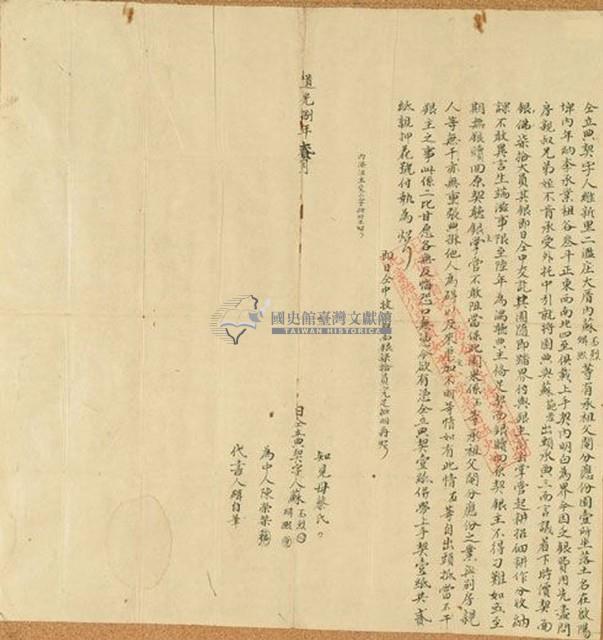 仝立典契字人維新里二濫庄大厝內蘇玉烈煥然等有承祖父鬮分應份園壹所坐落土名在
內年納李承業租谷叁斗正東西南北四至俱載上手契內明白為界今因乏銀費用先盡問
房親叔兄弟姪不肯承受外托中引就將園典與蘇 出頭承典三面言議着下時價契面
銀佛柒拾大員其銀即日仝中交訖其園隨即踏界付與銀主前去掌管起耕招佃耕作分收納
課不敢異言生端滋事限至陸年為滿聽典主備足契面銀贖回原契銀主不得刁難如至
期無銀贖回原契聽銀主掌管不敢阻當係此園果係玉等承祖父鬮分應份之業與別房親
人等無干亦無重張典掛他人為碍以及來歷不明等情如有此情玉等自出頭抵當不干
銀主之事此係二比甘愿各無反悔恐口無憑今欲有憑仝立典契壹紙併帶上手契壹紙共貳
紙親押花號付執為炤
即日仝中收過契面銀柒拾員完足批明再炤
內添註主
知見母蔡氏
為中人陳榮築
道光捌年 月 日仝立典契字人蘇玉烈煥然
代書人 自筆
國史館臺灣文獻館
TAIWAN HISTORICA